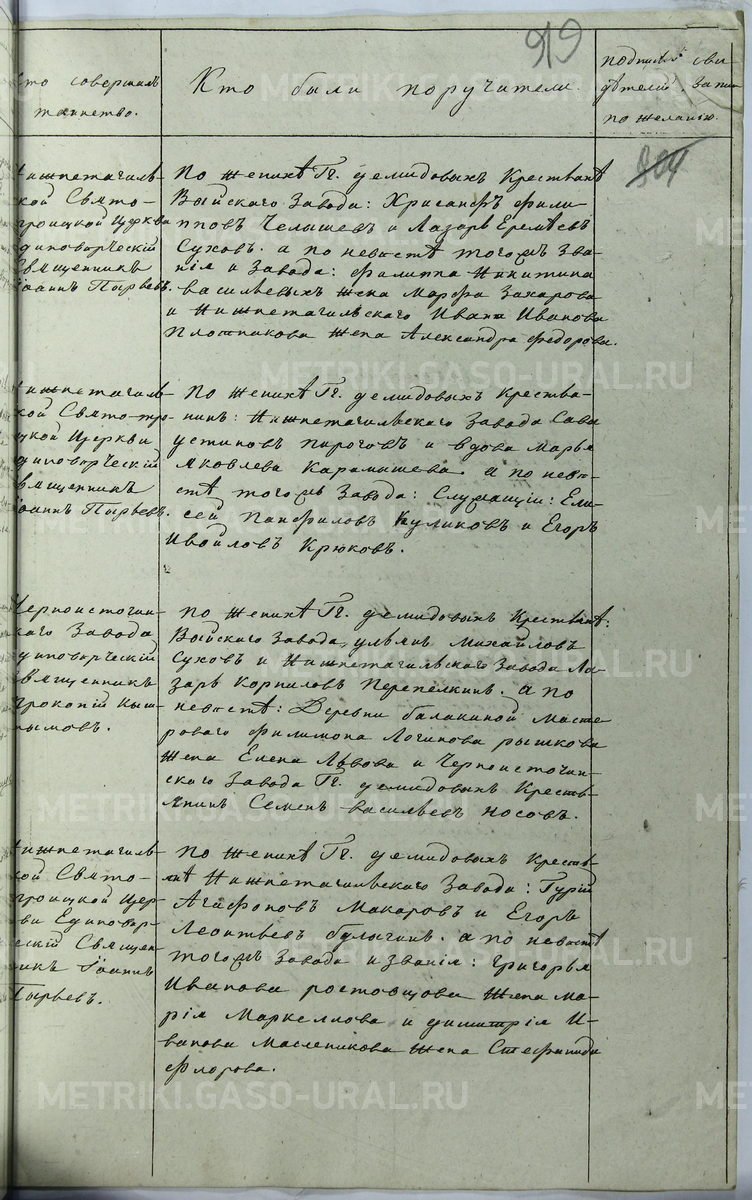 919
кто совершалъ
таинство.
Кто были поручители.
подпись сви
дѣтелей запи
по желанію.
304
Нижнетагиль-
ской Свято-
троицкой Церкви
единоверческій
Священникъ
Іоаннъ Пырьевъ.
По женихѣ Гг. Демидовыхъ Крестьянѣ
Выйскаго Завода: Хрисанфъ Фили
пповъ Челышевъ и Лазарь Еремѣевъ
Суховъ. а по невѣстѣ тогожъ Зва
нія и Завода: Филиппа Никитина
Васильевыхъ жена Марфа Захарова
и Нижнетагильскаго Ивана Иванова
Плотникова жена Александра Федорова.
Нижнетагиль-
ской Свято-тро-
ицкой Церкви
единоверческій
Священникъ
Іоаннъ Пырьевъ.
По женихѣ Гг. Демидовыхъ Крестья-
нинъ: Нижнетагильскаго Завода Сава
Устиновъ Пироговъ и вдова Марья
Яковлева Карамышева. а по невѣ-
стѣ тогожъ Завода: Служащіи: Ели-
сей Панфиловъ Куликовъ и Егоръ
Ивойловъ Крюковъ.
Черноисточин-
скаго Завода
единоверческій
Священникъ
Прокопій Кыш-
тымовъ.
По женихѣ Гг. Демидовыхъ Крестьянѣ:
Выйскаго Завода, Ульянъ Михайловъ
Суховъ и Нижнетагильскаго Завода Ла-
зарь Корниловъ Перепелкинъ. а по
невѣстѣ: Деревни Балакиной масте
роваго Филимона Логинова Рышкова
жена Елена Львова и Черноисточин-
скаго Завода Гг. Демидовыхъ Кресть-
янинъ Семенъ Васильевъ Носовъ.
Нижнетагиль-
ской Свято-
троицкой Цер-
кви Единовер-
ческій Священ-
никъ Іоаннъ
Пырьевъ.
По женихѣ Гг. Демидовыхъ Кресть-
янѣ Нижнетагильскаго Завода: Гурій
Агафоновъ Макаровъ и Егоръ
Леонтьевъ Булыгинъ. а по невѣстѣ
тогожъ Завода и званія: Григорья
Иванова Ростовщова жена Ма-
рія Маркеллова и Димитрія И-
ванова Масленикова жена Стефанида
Флорова.
METRIKI.GASO-URAL.RU